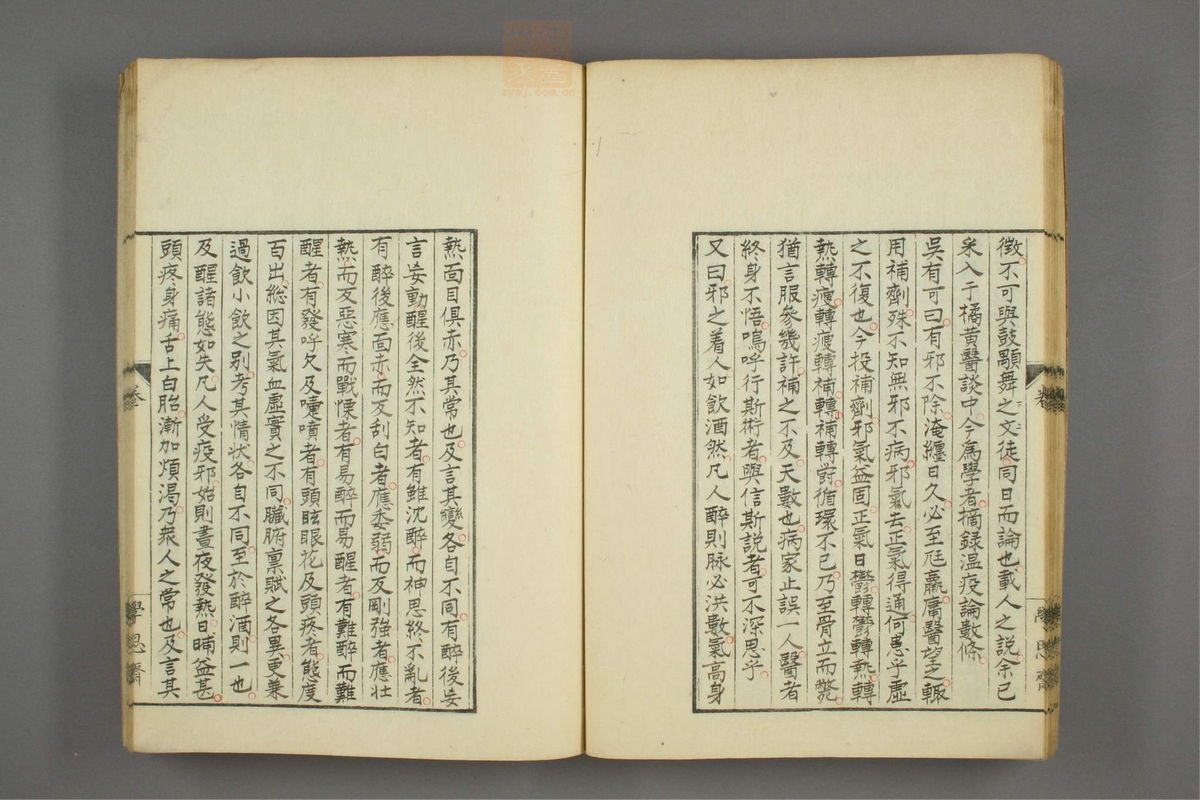 徵不可與鼓顯舞之文徒同日而論也載人之説余已
采入于橘黄醫談中今為學者摘録溫疫論數條
吳有可曰有邪不除淹纏日久必至尫羸庸醫望之輒
用補劑殊不知無邪不病邪氣去正氣得通何患乎虛
之不復也今投補劑邪氣益固正氣日鬱轉鬱轉熱轉
熱轉瘦轉瘦轉補轉補轉鬱循環不已乃至骨立而斃
猶言服參幾許補之不及天數也病家止誤一人醫者
終身不悟嗚呼行斯術者與信斯説者可不深思乎
又曰邪之着人如飲酒然凡人醉則脉必洪數氣高身
熱面目俱赤乃其常也及言其變各自不同有醉後妄
言妄動醒後全然不知者有雖沈醉而神思終不亂者
有醉後應面赤而反刮白者應委弱而反剛強者應壯
熱而反惡寒而戰慄者有易醉而易醒者有難醉而難
醒者有發呼欠及嚏噴者有頭眩眼花及頭疼者態度
百出總因其氣血虛實之不同臟腑禀賦之各異更兼
過飲小飲之别考其情状各自不同至於醉酒則一也
及醒諸態如失凡人受疫邪始則晝夜發熱日晡益甚
頭疼身痛舌上白胎漸加煩渴乃衆人之常也及言其
學思齋